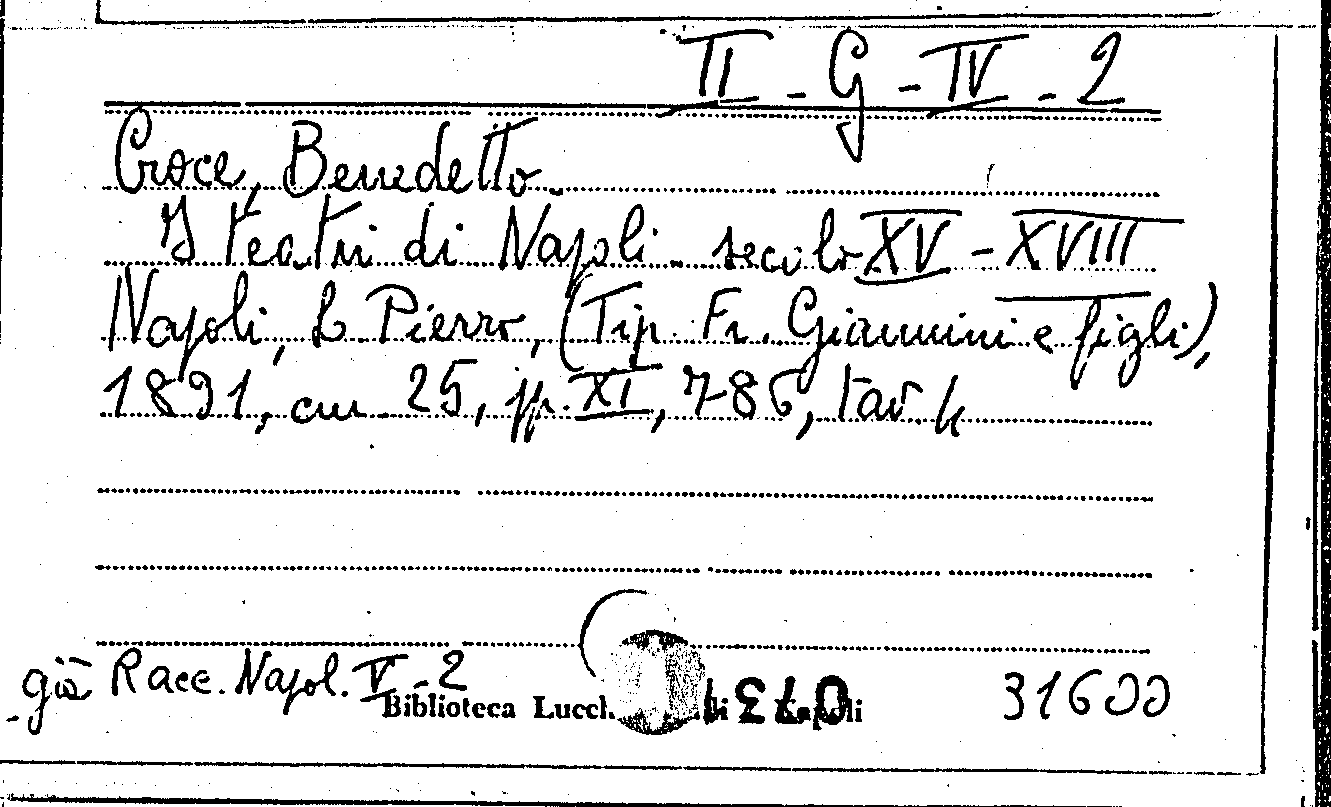 II - G - IV - 2
Croce, Benedetto.
I teatri di Napoli. secolo XV - XVIII
Napoli, L. Pierro, (Tip. Fr. Giannini e figli),
1891, cm. 25, pp. XI, 786, tav. 4
già Racc. Napol. V - 2
Biblioteca Lucch
31600